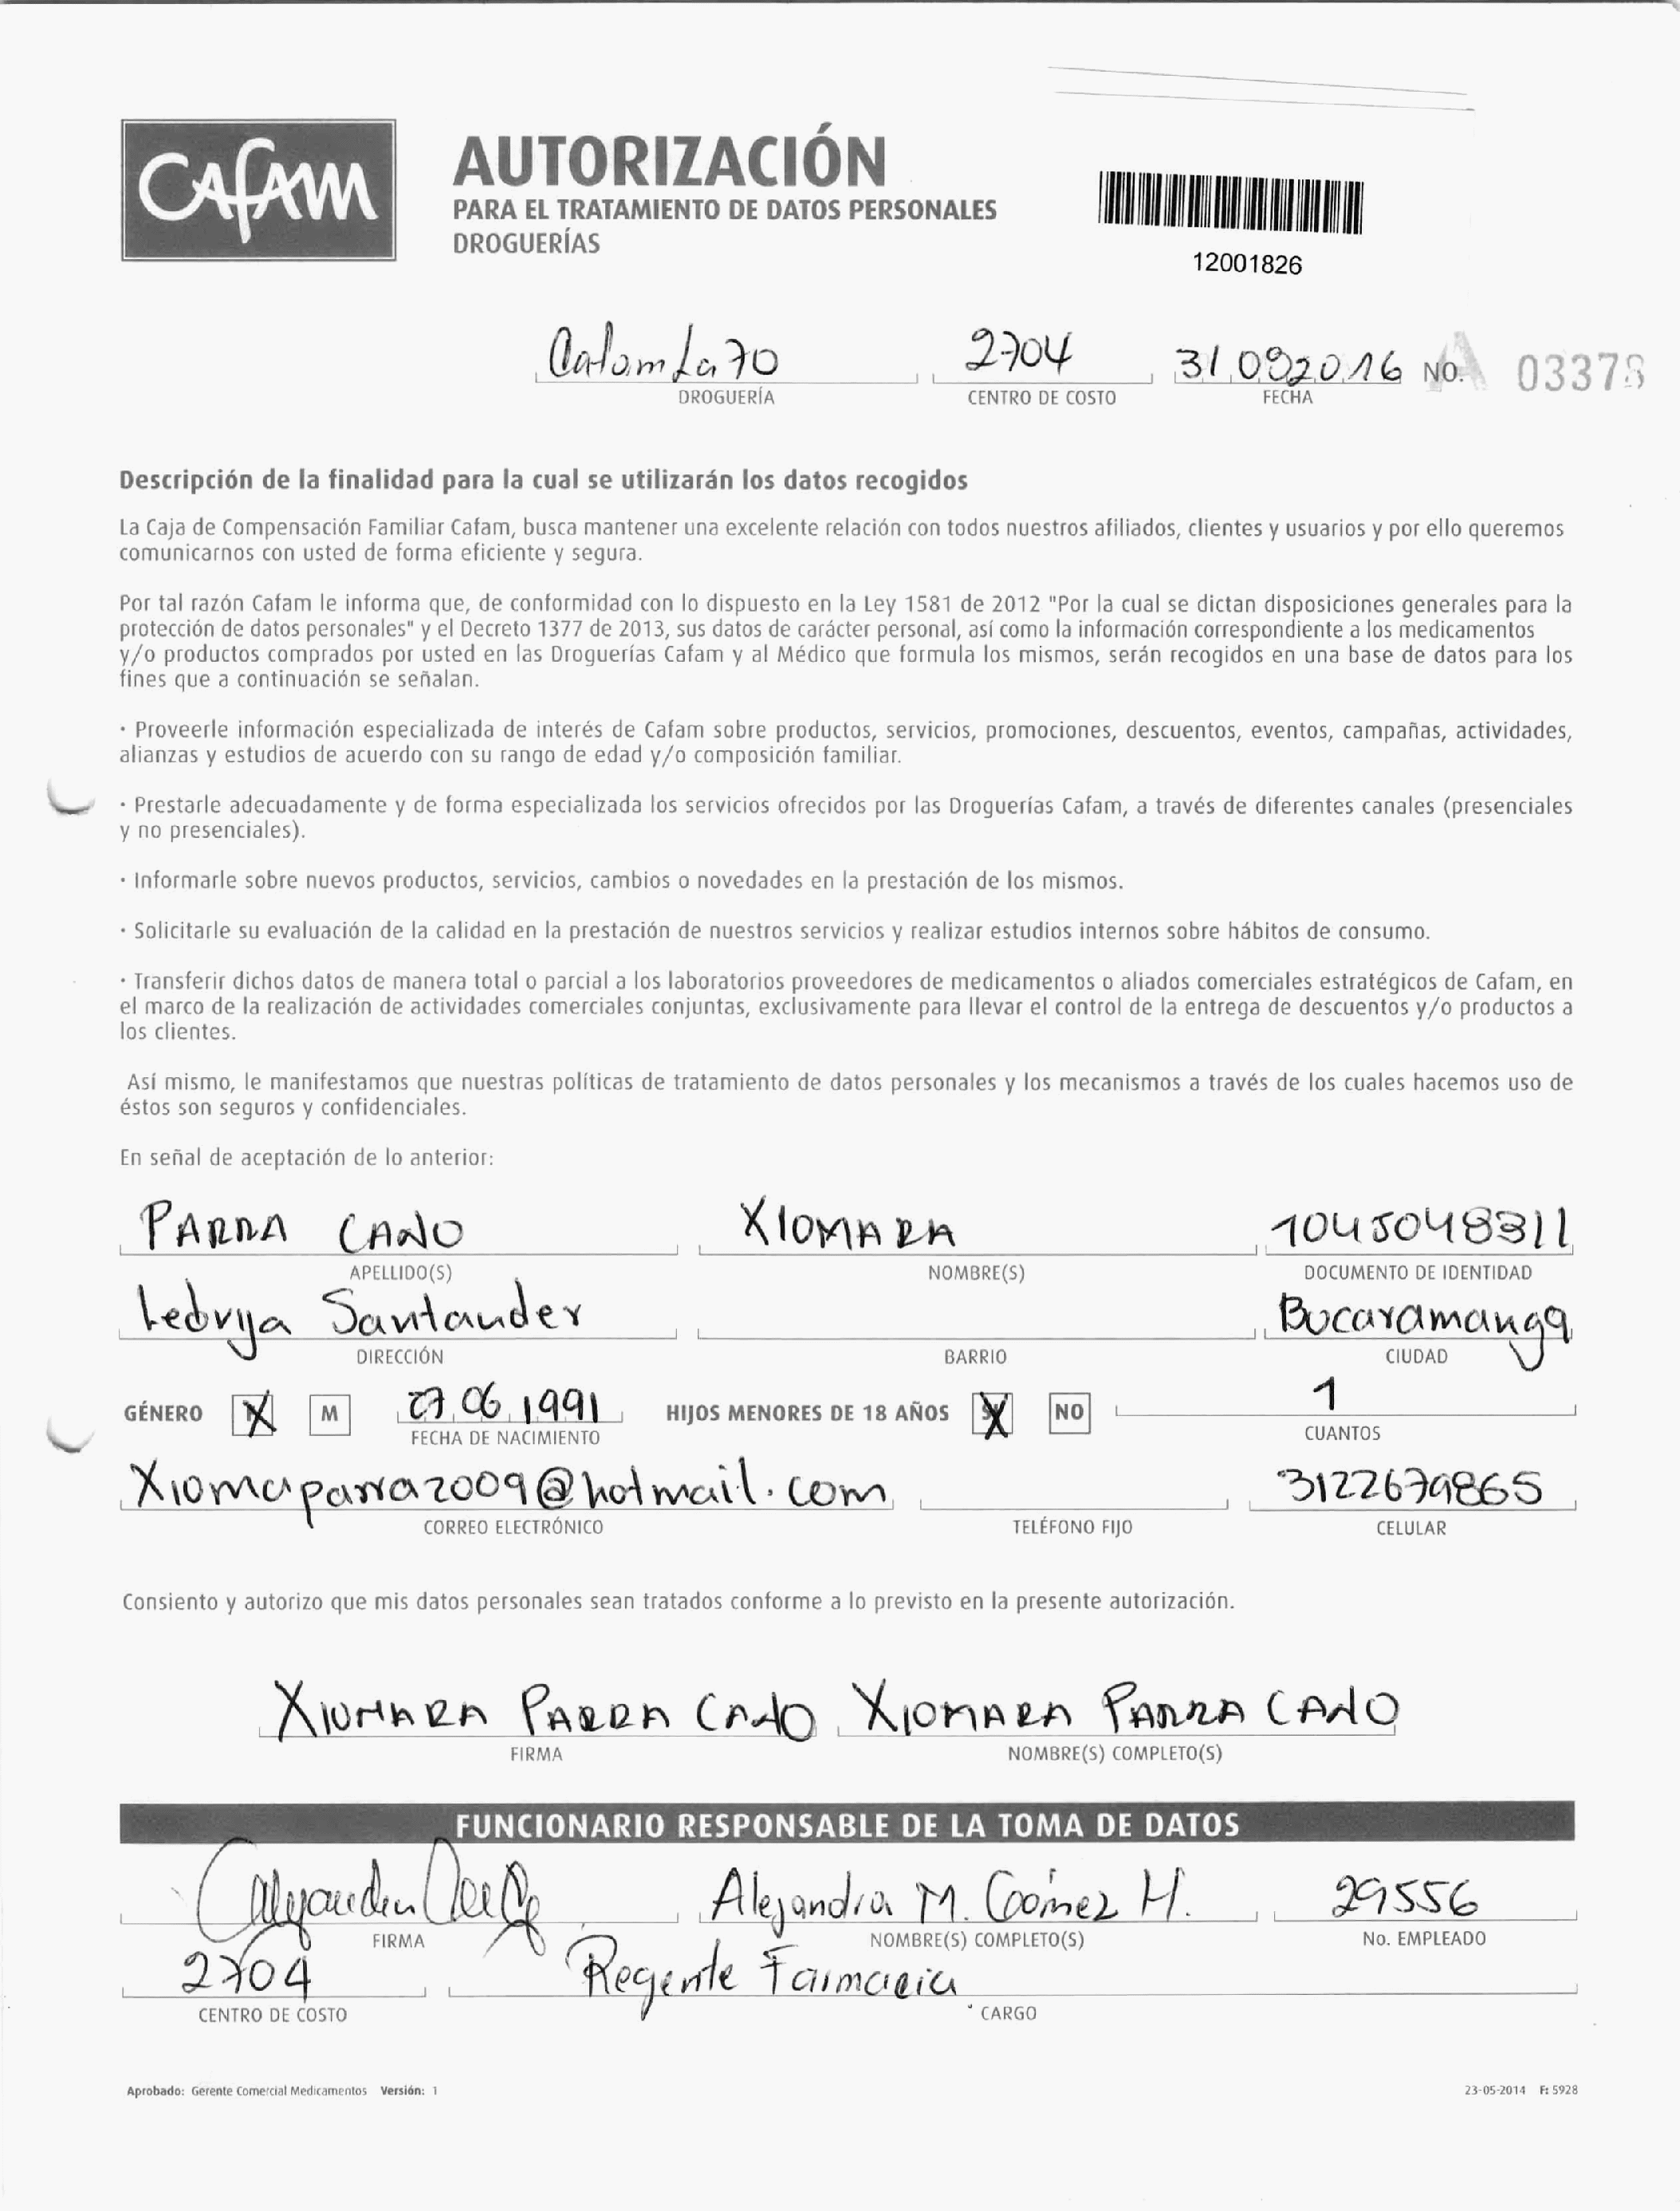 CAFAM
AUTORIZACIÓN
PARA EL TRATAMIENTO DE DATOS PERSONALES
DROGUERÍAS
12001826
Cafam La 70 2704 31 2016 No. A 03378
DROGUERÍA CENTRO DE COSTO FECHA
Descripción de la finalidad para la cual se utilizarán los datos recogidos
La Caja de Compensación Familiar Cafam, busca mantener una excelente relación con todos nuestros afiliados, clientes y usuarios y por ello queremos
comunicarnos con usted de forma eficiente y segura.
Por tal razón Cafam le informa que, de conformidad con lo dispuesto en la Ley 1581 de 2012 "Por la cual se dictan disposiciones generales para la
protección de datos personales" y el Decreto 1377 de 2013, sus datos de carácter personal, así como la información correspondiente a los medicamentos
y/o productos comprados por usted en las Droguerías Cafam y al Médico que formula los mismos, serán recogidos en una base de datos para los
fines que a continuación se señalan.
· Proveerle información especializada de interés de Cafam sobre productos, servicios, promociones, descuentos, eventos, campañas, actividades,
alianzas y estudios de acuerdo con su rango de edad y/o composición familiar.
· Prestarle adecuadamente y de forma especializada los servicios ofrecidos por las Droguerías Cafam, a través de diferentes canales (presenciales
y no presenciales).
· Informarle sobre nuevos productos, servicios, cambios o novedades en la prestación de los mismos.
· Solicitarle su evaluación de la calidad en la prestación de nuestros servicios y realizar estudios internos sobre hábitos de consumo.
· Transferir dichos datos de manera total o parcial a los laboratorios proveedores de medicamentos o aliados comerciales estratégicos de Cafam, en
el marco de la realización de actividades comerciales conjuntas, exclusivamente para llevar el control de la entrega de descuentos y/o productos a
los clientes.
Así mismo, le manifestamos que nuestras políticas de tratamiento de datos personales y los mecanismos a través de los cuales hacemos uso de
éstos son seguros y confidenciales.
En señal de aceptación de lo anterior:
PARRA CANO XIOMARA 1045048311
APELLIDO(S) NOMBRE(S) DOCUMENTO DE IDENTIDAD
Santander Bucaramanga
DIRECCIÓN BARRIO CIUDAD
GÉNERO X M 27 06 1991 HIJOS MENORES DE 18 AÑOS X NO 1
FECHA DE NACIMIENTO CUANTOS
Xiomaparra2009@hotmail.com 3122679865
CORREO ELECTRÓNICO TELÉFONO FIJO CELULAR
Consiento y autorizo que mis datos personales sean tratados conforme a lo previsto en la presente autorización.
XIOMARA PARRA CANO XIOMARA PARRA CANO
FIRMA NOMBRE(S) COMPLETO(S)
FUNCIONARIO RESPONSABLE DE LA TOMA DE DATOS
Alejandra M. Goómez H. 29556
FIRMA NOMBRE(S) COMPLETO(S) No. EMPLEADO
2704 Regente Farmacia
CENTRO DE COSTO CARGO
Aprobado: Gerente Comercial Medicamentos Versión: 1 23-05-2014 F: 5928